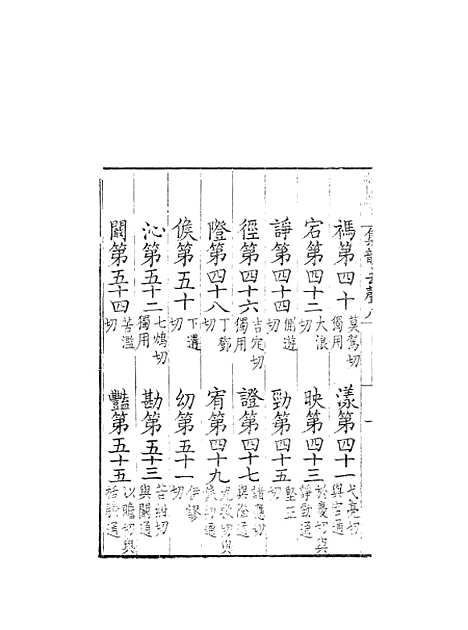 集韻去聲八
禡第四十 莫駕切獨用 漾第四十一 弋亮切與宕通
宕第四十二 大浪切 映第四十三 於慶切與諍勁通
諍第四十四 側迸切 勁第四十五 堅正切
徑第四十六 吉定切獨用 證第四十七 諸應切與隥通
隥第四十八 丁鄧切 宥第四十九 尤救切與候幼通
候第五十 下遘切 幼第五十一 伊謬切
沁第五十二 七鴆切獨用 勘第五十三 苦紺切與闞通
闞第五十四 苦濫切 豔第五十五 以贍切與栝驗通